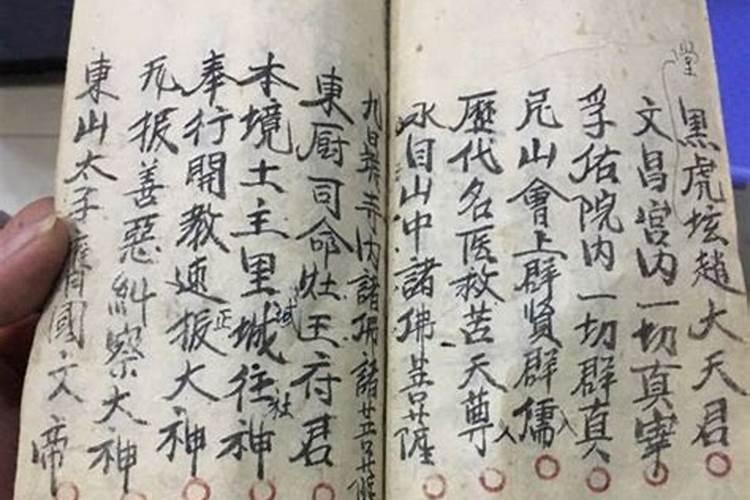 堂
黑虎坛趙大天君
文昌宫内一切真宰
孚佑院内一切群真
尼山會上群賢群儒
歷代名医救苦天尊
目山中諸佛
寺内諸佛諸
東厨司命灶王府君
本境土主里城往神
域
社
正
奉行開教速报大神
报善惡糾察大神
東山太子國文帝